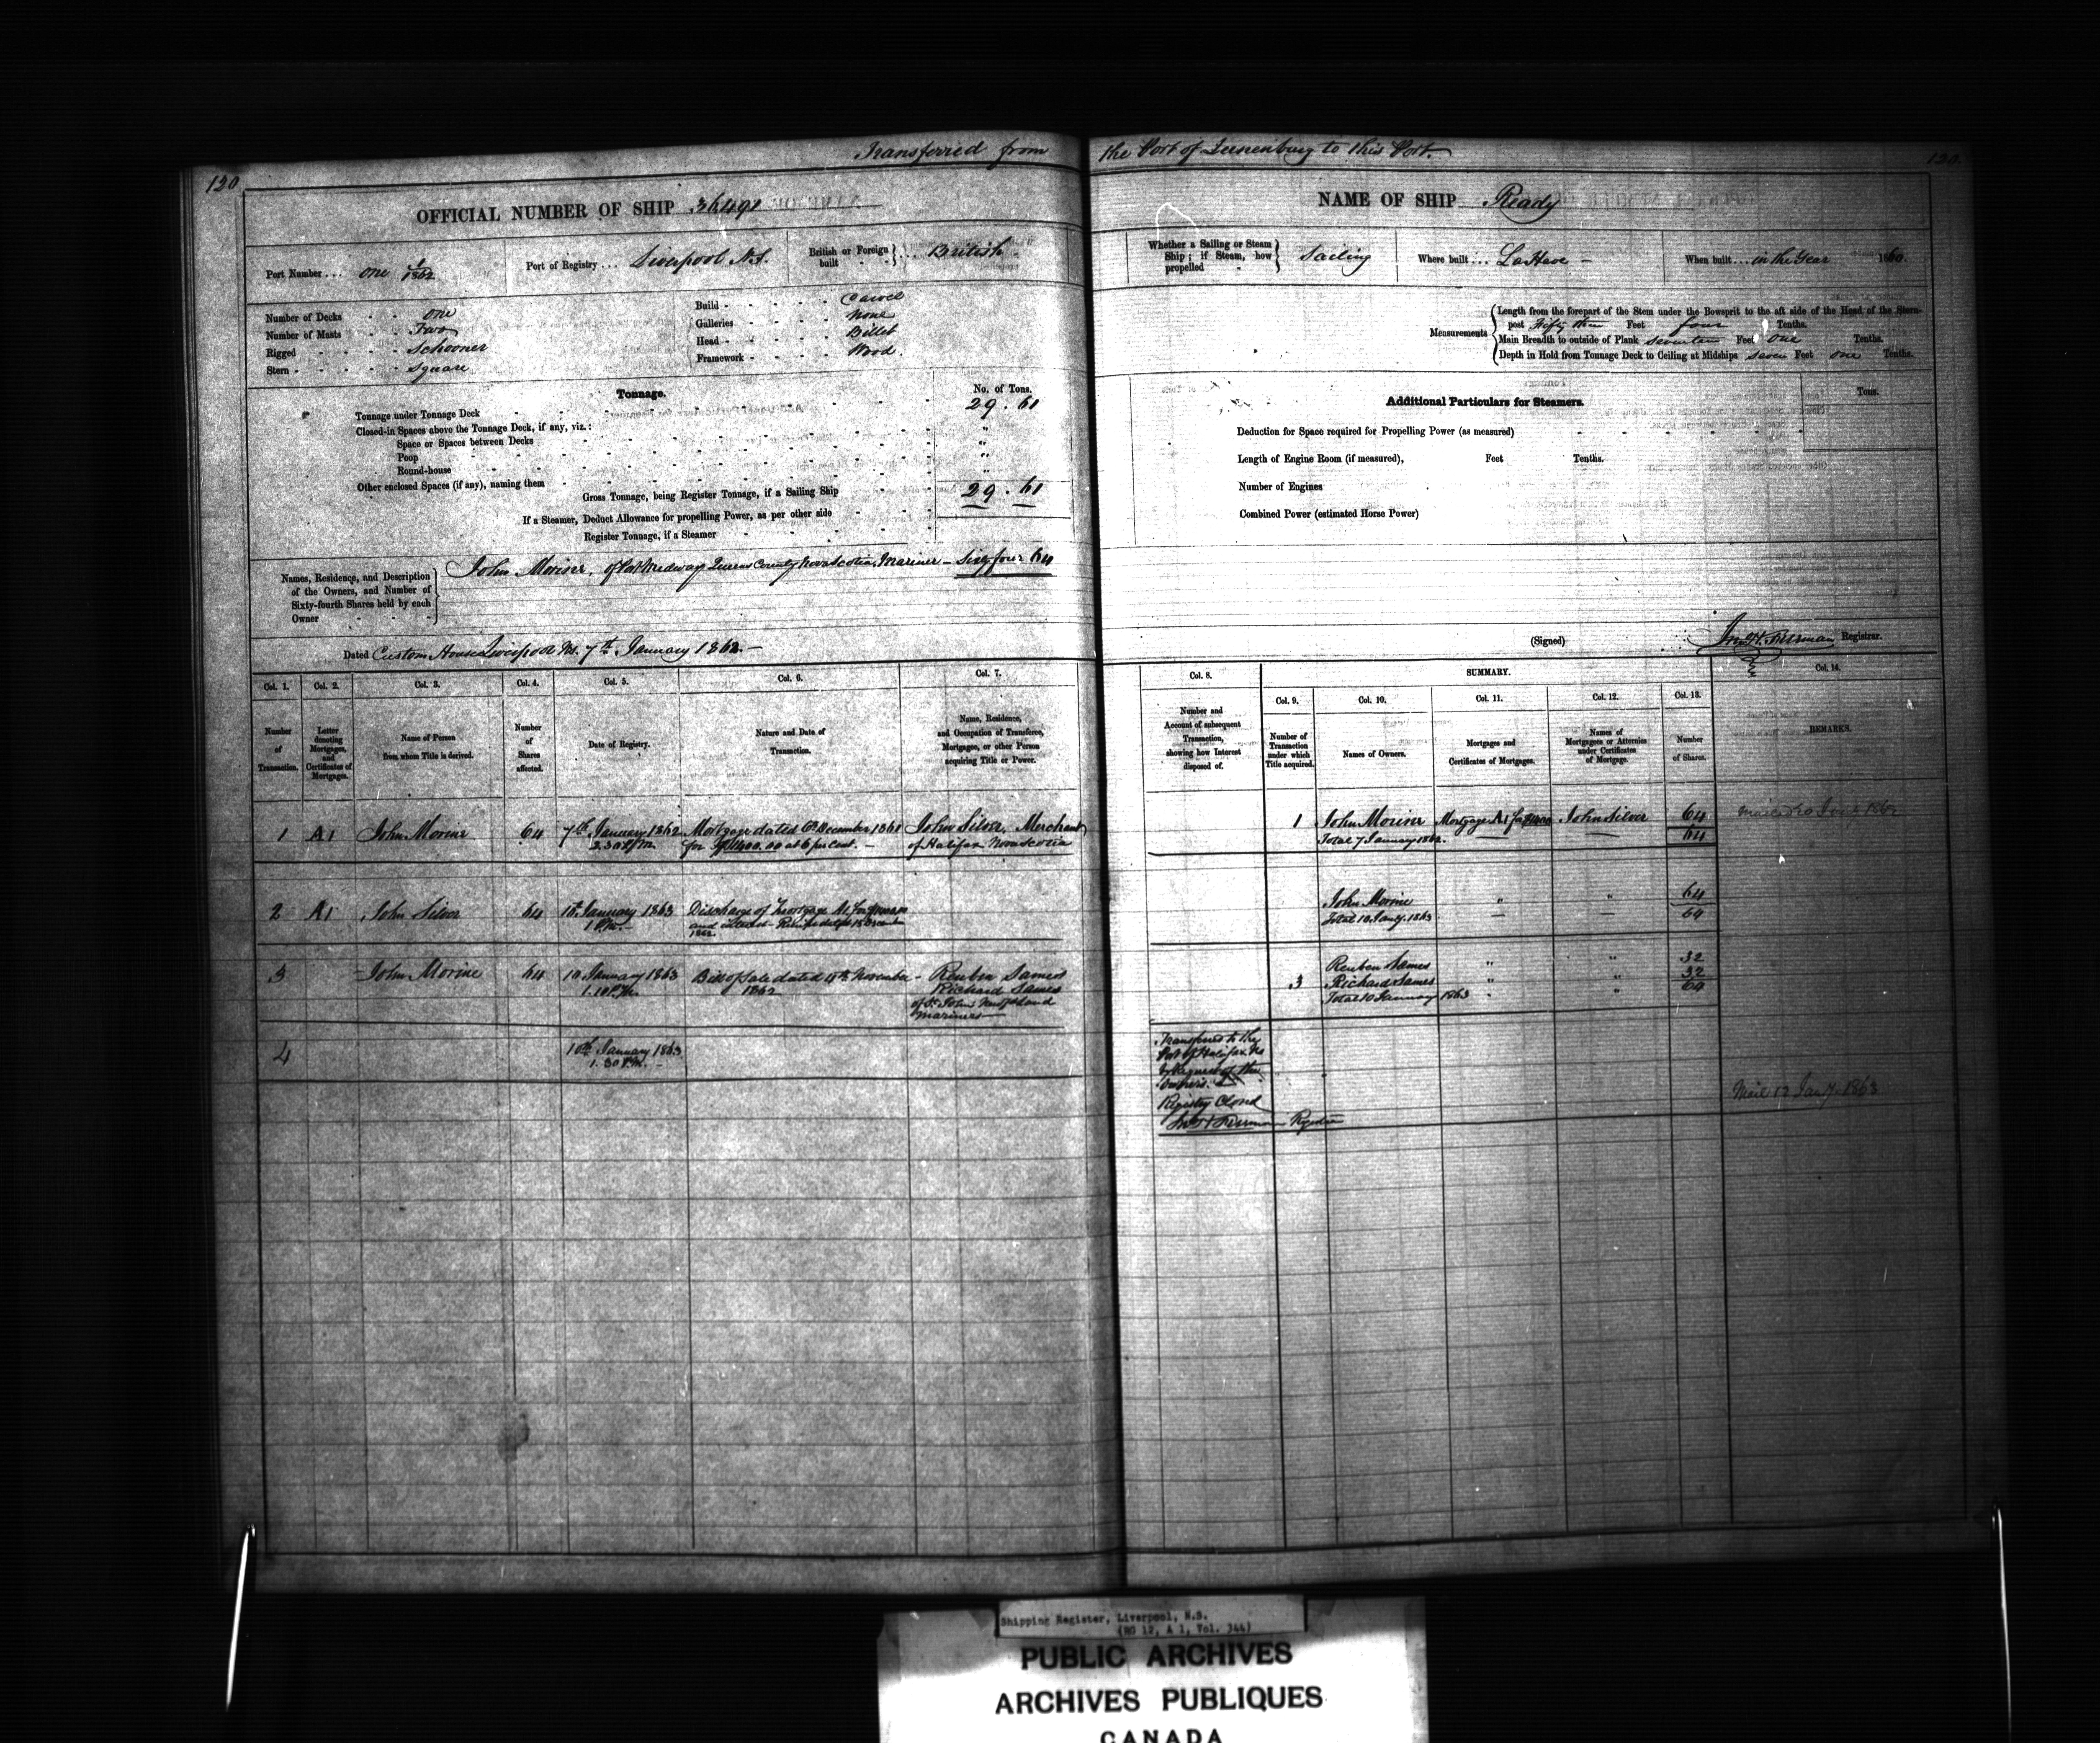 Transferred from the Port of Lunenburg to this Port.
120
120
OFFICIAL NUMBER OF SHIP 36491
NAME OF SHIP Ready
Port Number ... one 1/1862
Port of Registry ... Liverpool N.S.
British or Foreign built } ... British
Whether a Sailing or Steam Ship; if Steam, how propelled } Sailing
Where built ... LaHave
When built ... in the Year 1860.
Number of Decks - - one
Number of Masts - - Two
Rigged - - - - Schooner
Stern - - - - - Square
Build - - - - - Carvel
Galleries - - - - None
Head - - - - - Billet
Framework - - - - Wood.
Measurements
Length from the forepart of the Stem under the Bowsprit to the aft side of the Head of the Stern-
post Fifty Feet four Tenths.
Main Breadth to outside of Plank seventeen Feet one Tenths.
Depth in Hold from Tonnage Deck to Ceiling at Midships seven Feet one Tenths.
Tonnage.
No. of Tons.
Tonnage under Tonnage Deck 29.61
Closed-in Spaces above the Tonnage Deck, if any, viz.:
Space or Spaces between Decks "
Poop "
Round-house "
Other enclosed Spaces (if any), naming them
Gross Tonnage, being Register Tonnage, if a Sailing Ship 29.61
If a Steamer, Deduct Allowance for propelling Power, as per other side
Register Tonnage, if a Steamer
Additional Particulars for Steamers.
Tons.
Deduction for Space required for Propelling Power (as measured)
Length of Engine Room (if measured), Feet Tenths.
Number of Engines
Combined Power (estimated Horse Power)
Names, Residence, and Description
of the Owners, and Number of
Sixty-fourth Shares held by each
Owner
John Morine, of Port Medway Queens County Nova Scotia, Mariner - Sixty four 64
Dated Custom House Liverpool N.S. 7th January 1862.
(Signed) Registrar.
Col. 1. Col. 2. Col. 3. Col. 4. Col. 5. Col. 6. Col. 7.
Number of Transaction.
Letter denoting Mortgages, and Certificates of Mortgages.
Name of Person from whom Title is derived.
Number of Shares affected.
Date of Registry.
Nature and Date of Transaction.
Name, Residence, and Occupation of Transferee, Mortgagee, or other Person acquiring Title or Power.
Col. 8. SUMMARY. Col. 14.
Col. 9. Col. 10. Col. 11. Col. 12. Col. 13.
Number and Account of subsequent Transaction, showing how Interest disposed of.
Number of Transaction under which Title acquired.
Names of Owners.
Mortgages and Certificates of Mortgages.
Names of Mortgagees or Attornies under Certificates of Mortgage.
Number of Shares.
REMARKS.
1 A1 John Morine 64 7th January 1862 Mortgage dated 6th December 1861 John Silver, Merchant
2.30 P.M. for $1400.00 at 6 per cent. - of Halifax Nova Scotia
1 John Morine Mortgage A1 for $1400 John Silver 64
Total 7 January 1862. 64
2 A1 John Silver 64 10th January 1863 Discharge of Mortgage A1 for
1 P.M. and interest
1862
John Morine " " 64
Total 10 Jany. 1863 64
3 John Morine 64 10 January 1863 Bill of Sale dated November - Reuben Sames
1.10 P.M. 1862 Richard Sames
of St. John's Newfoundland
Mariners
Reuben Sames " " 32
3 Richard Sames " " 32
Total 10 January 1863 64
4 10th January 1863
1.30 P.M.
Transferred to the
Port of Halifax N.S.
by Request of the
Owners.
Registry Closed
Registrar
Mail 12 Jany. 1863
Shipping Register, Liverpool, N.S.
(RG 12, A 1, Vol. 344)
PUBLIC ARCHIVES
ARCHIVES PUBLIQUES
CANADA